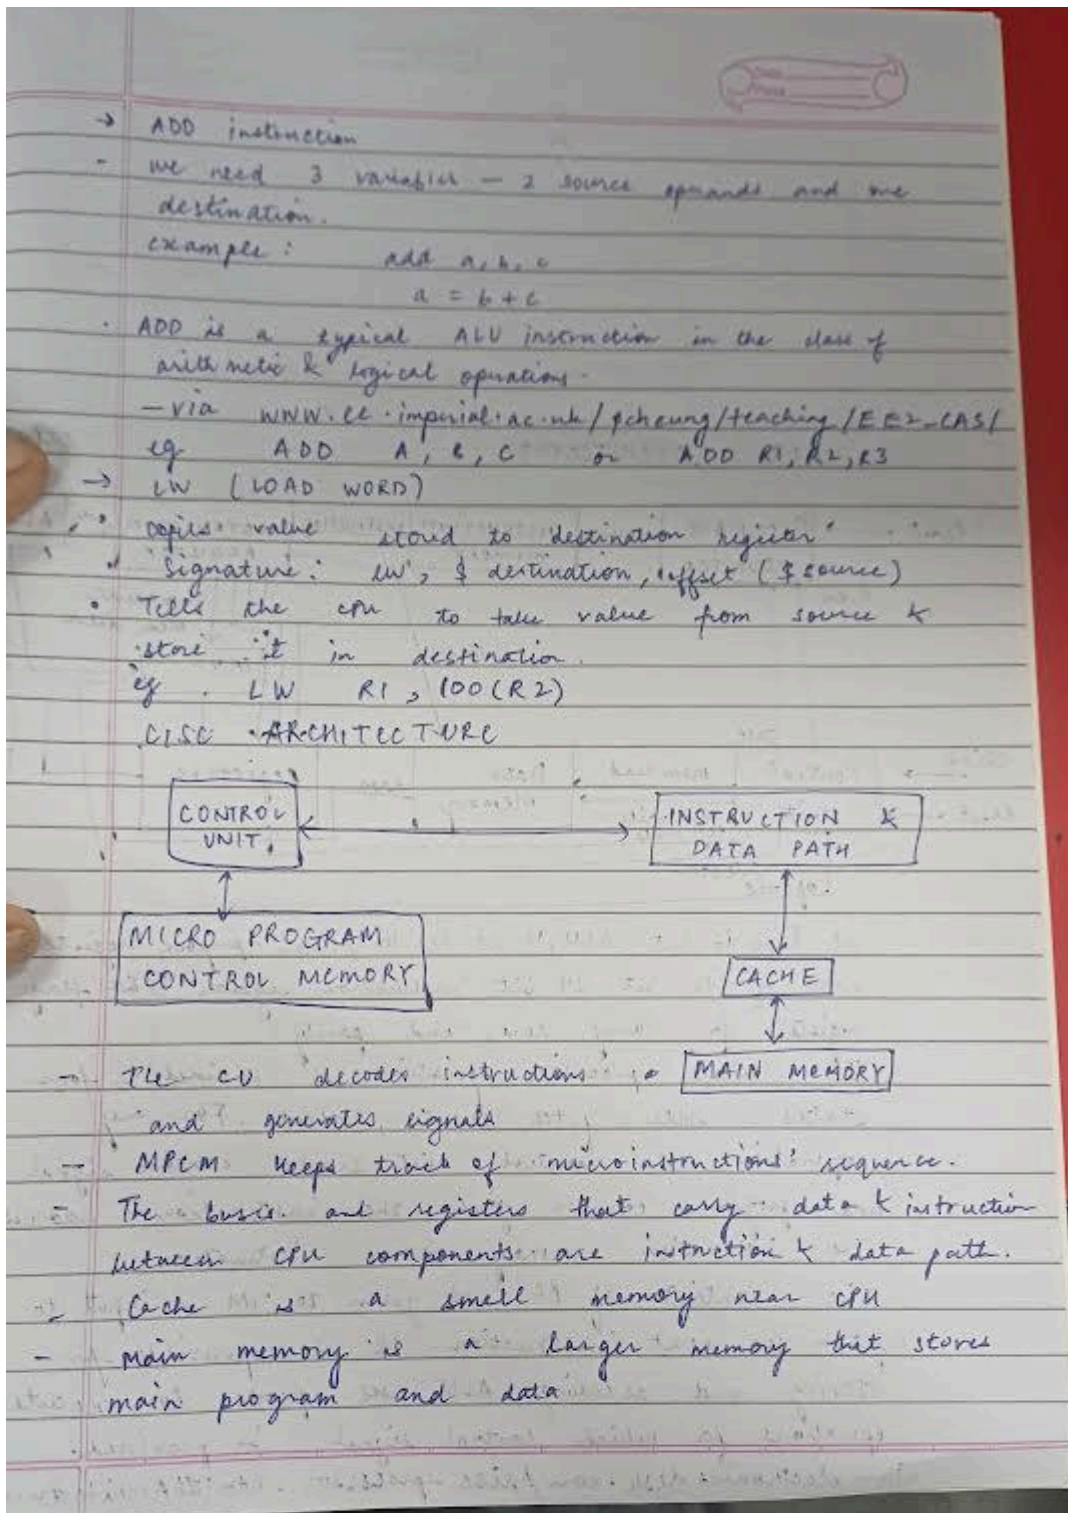 → ADD instruction
- we need 3 variables — 2 source operands and one
destination.
example: add a, b, c
a = b + c
· ADD is a typical ALU instruction in the class of
arithmetic & logical operations.
- via www.ee.imperial.ac.uk/pcheung/teaching/EE2_CAS/
eg ADD A, B, C or ADD R1, R2, R3
→ LW (LOAD WORD)
copies value stored to destination register
Signature: lw, $ destination, offset ($ source)
• Tells the cpu to take value from source &
store it in destination.
eg. LW R1, 100(R2)
CISC ARCHITECTURE
CONTROL
UNIT
INSTRUCTION &
DATA PATH
MICRO PROGRAM
CONTROL MEMORY
CACHE
MAIN MEMORY
- The CU decodes instructions
and generates signals
- MPCM keeps track of microinstructions' sequence.
- The buses and registers that carry data & intruction
between CPU components are instruction & data path.
- Cache is a small memory near CPU
- main memory is a larger memory that stores
main program and data